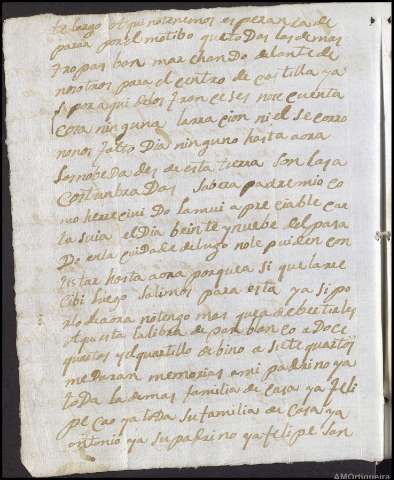 te largo aqui no tenemos esperança de
parar por el motibo que to Das las demas
tropas ban marchando delante de
nosotros para el centro de castilla ya
si por aqui de los franceses no se cuenta
cosa ninguna la rracion ni el so corro
no nos falto Dia ninguno hasta aora
las nobeda des de esta tierra son las a
costunbra Das sabera padre mio co
mo he rrecivi Do la mui apreciable car
ta suia el Dia beinte ynuebe del pasa
Do en la ciuda de de lugo no le pui den con
testar hasta aora porque a si que la rre
cibi luego salimos para esta ya si po
r lo de aora no tengo mas que a de bertirles
aqui esta la libra de pan blanco a Doce
quartos y el quartillo de bino a siete quartos
me Daran memorias a mi padrino ya
toda la demas familia de casa ya feli
pe cao ya toda su familia de casa ya
antonio ya su padrino ya felipe son
AMOrtigueira